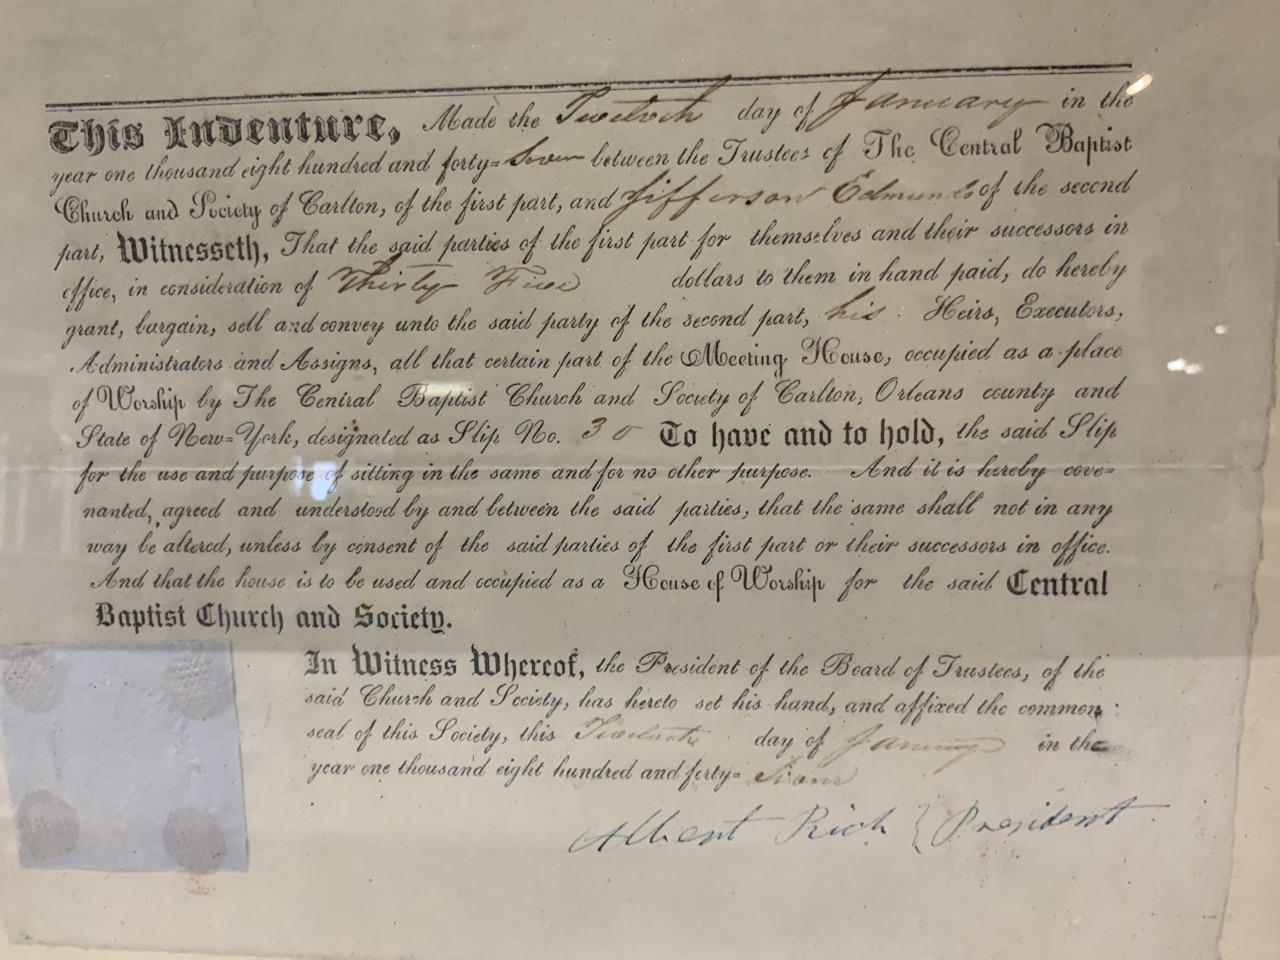 This Indenture, Made the Twelvth day of January in the
year one thousand eight hundred and forty=Seven between the Trustees of The Central Baptist
Church and Society of Carlton, of the first part, and Jifferson Edmunds of the second
part, Witnesseth, That the said parties of the first part for themselves and their successors in
office, in consideration of Thirty Five dollars to them in hand paid, do hereby
grant, bargain, sell and convey unto the said party of the second part, his Heirs, Executors,
Administrators and Assigns, all that certain part of the Meeting House, occupied as a place
of Worship by The Central Baptist Church and Society of Carlton, Orleans county and
State of New=York, designated as Slip No. 30 To have and to hold, the said Slip
for the use and purpose of sitting in the same and for no other purpose. And it is hereby cove=
nanted, agreed and understood by and between the said parties, that the same shall not in any
way be altered, unless by consent of the said parties of the first part or their successors in office.
And that the house is to be used and occupied as a House of Worship for the said Central
Baptist Church and Society.
In Witness Whereof, the President of the Board of Trustees, of the
said Church and Society, has hereto set his hand, and affixed the common
seal of this Society, this Twelvth day of January in the
year one thousand eight hundred and forty= Seven
Albert Rich { President